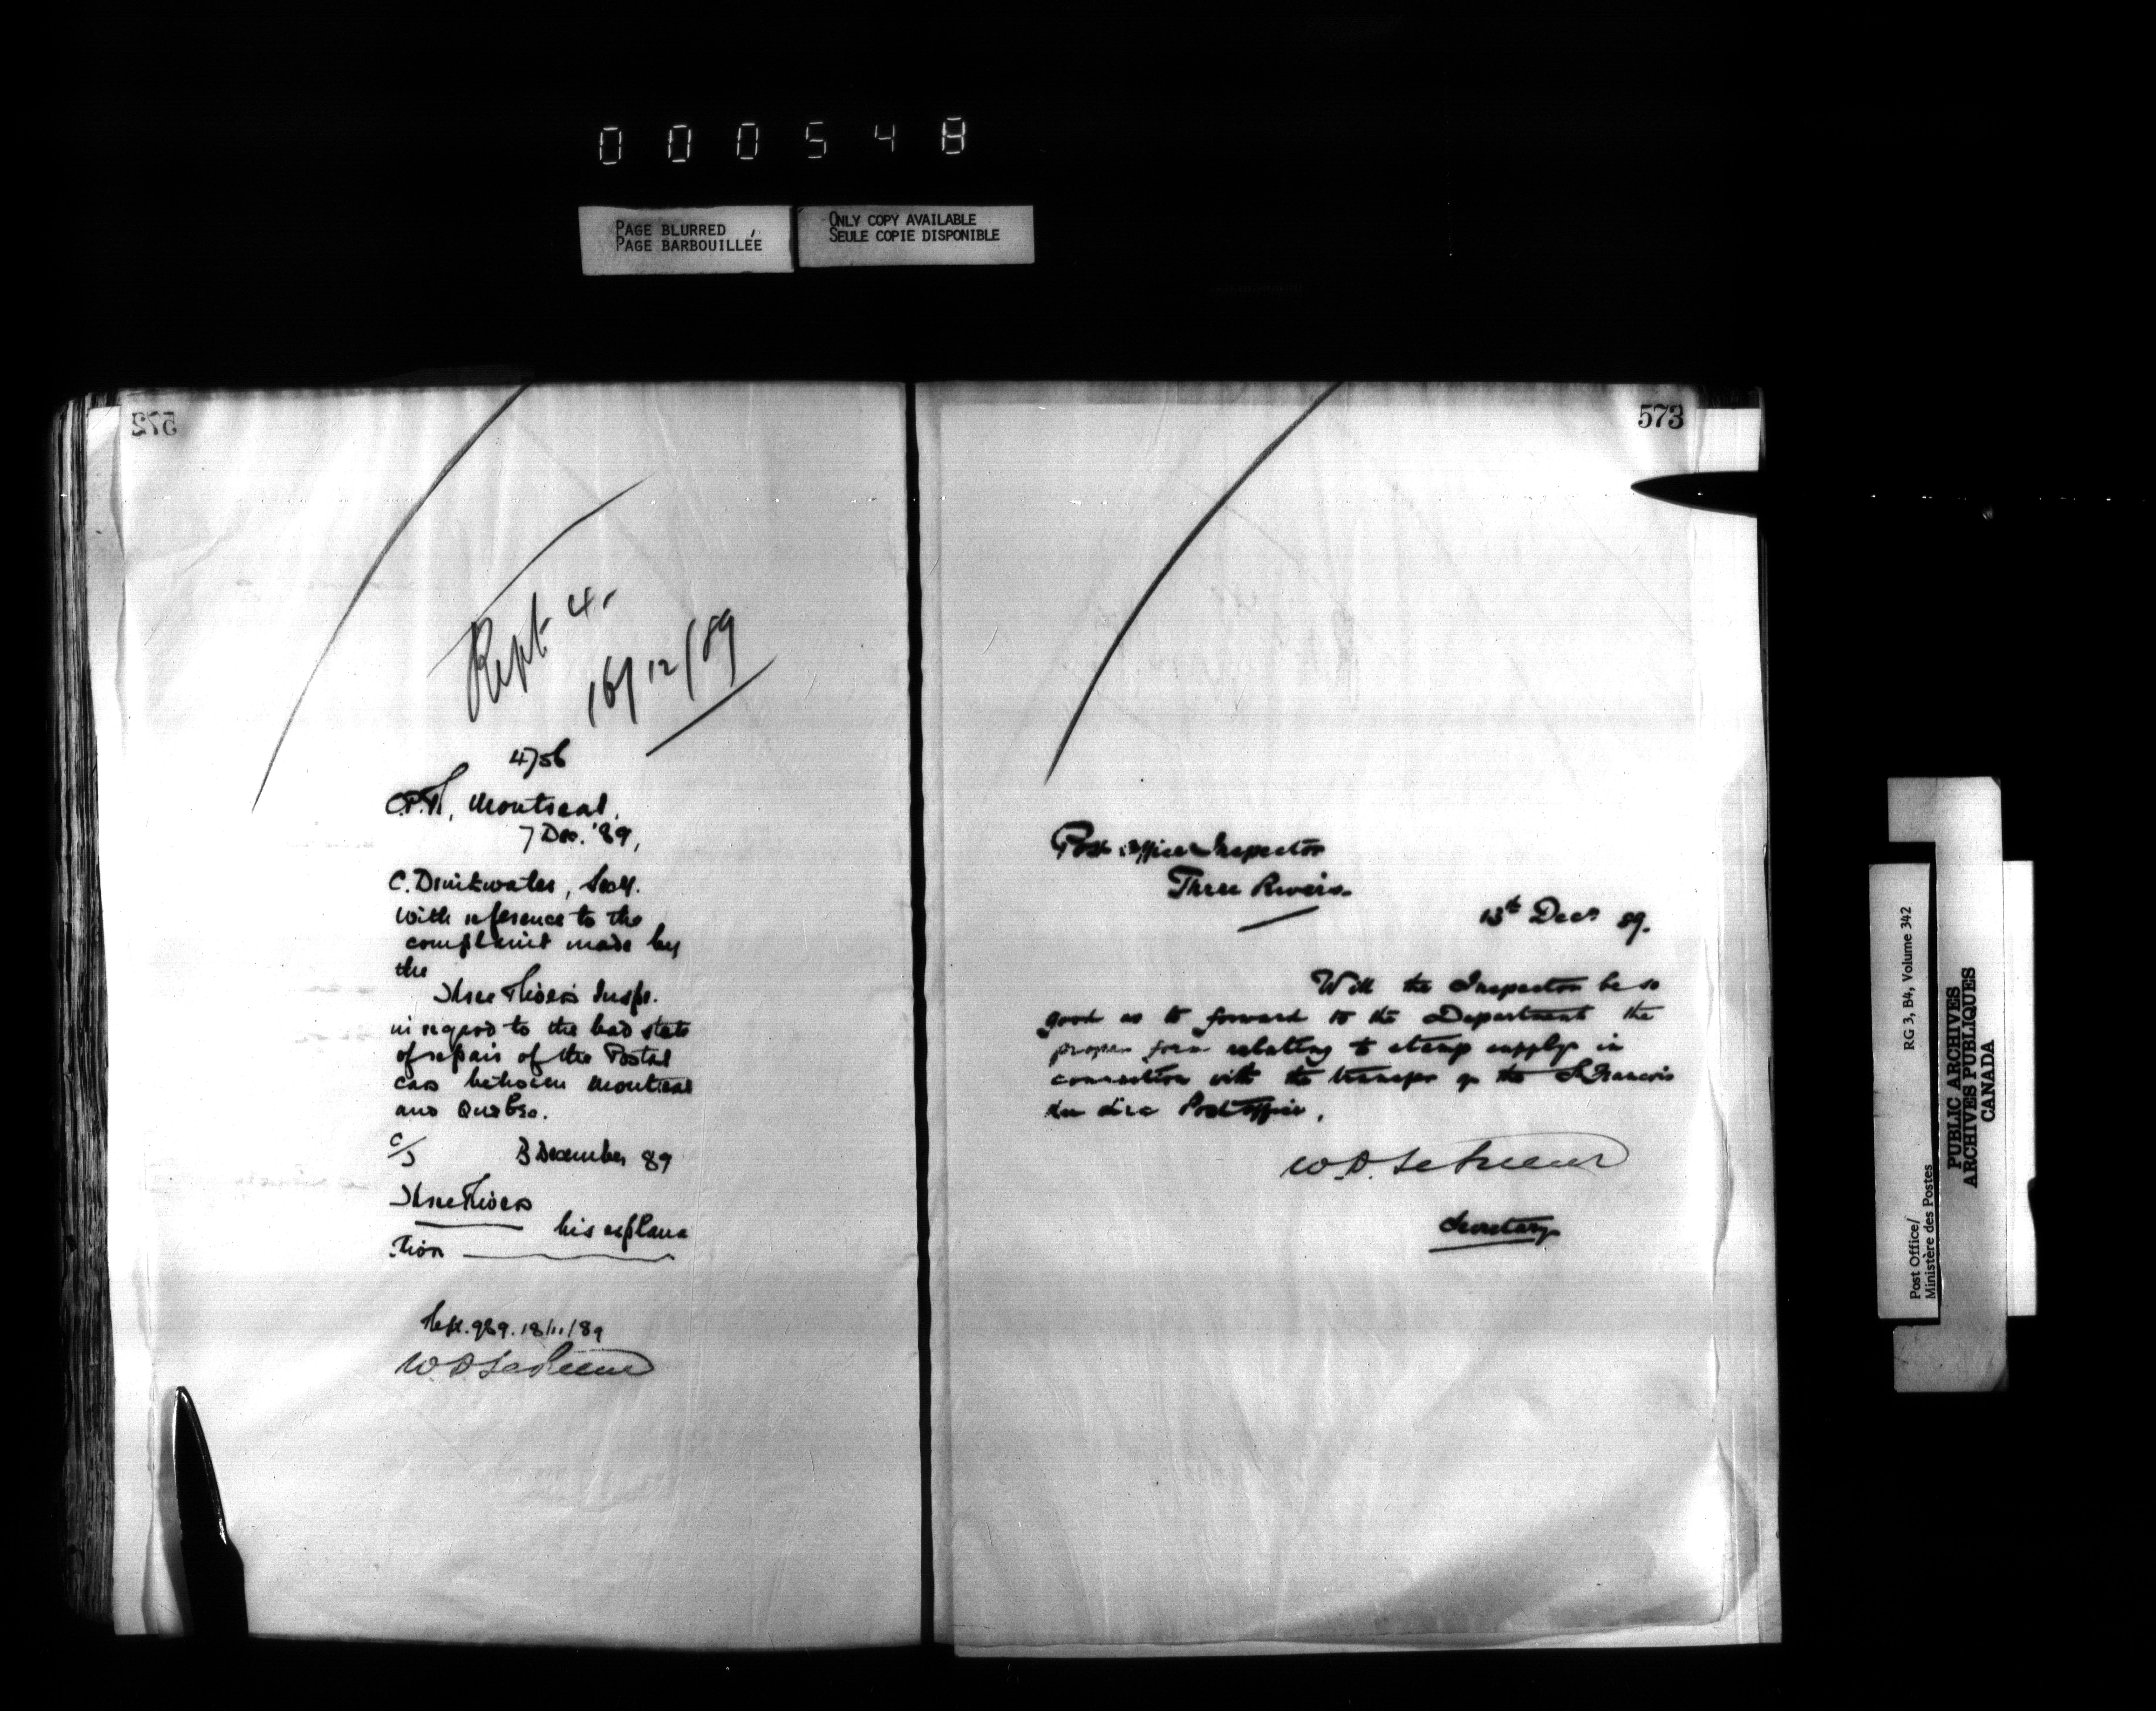 000548
PAGE BLURRED
PAGE BARBOUILLÉE
ONLY COPY AVAILABLE
SEULE COPIE DISPONIBLE
572
Rept. 4.
16/12/89
4756
C.P.R., Montreal,
7 Dec. '89,
C. Drinkwater, Secy.
With reference to the
complaint made by
the
Three Rivers Inspr.
in regard to the bad state
of repair of the Postal
cars between Montreal
and Quebec.
C/J 13 December 89
Three Rivers
his explana
tion
Rept. 989. 18/11/89
W. D. LeSueur
573
Post Office Inspector
Three Rivers.
13th Decr 89.
Will the Inspector be so
good as to forward to the Department the
proper form relating to stamp supply in
connection with the transfer of the St. Francois
du Lac Post Office.
W. D. LeSueur
Secretary
RG 3, B4, Volume 342
Post Office/
Ministère des Postes
PUBLIC ARCHIVES
ARCHIVES PUBLIQUES
CANADA